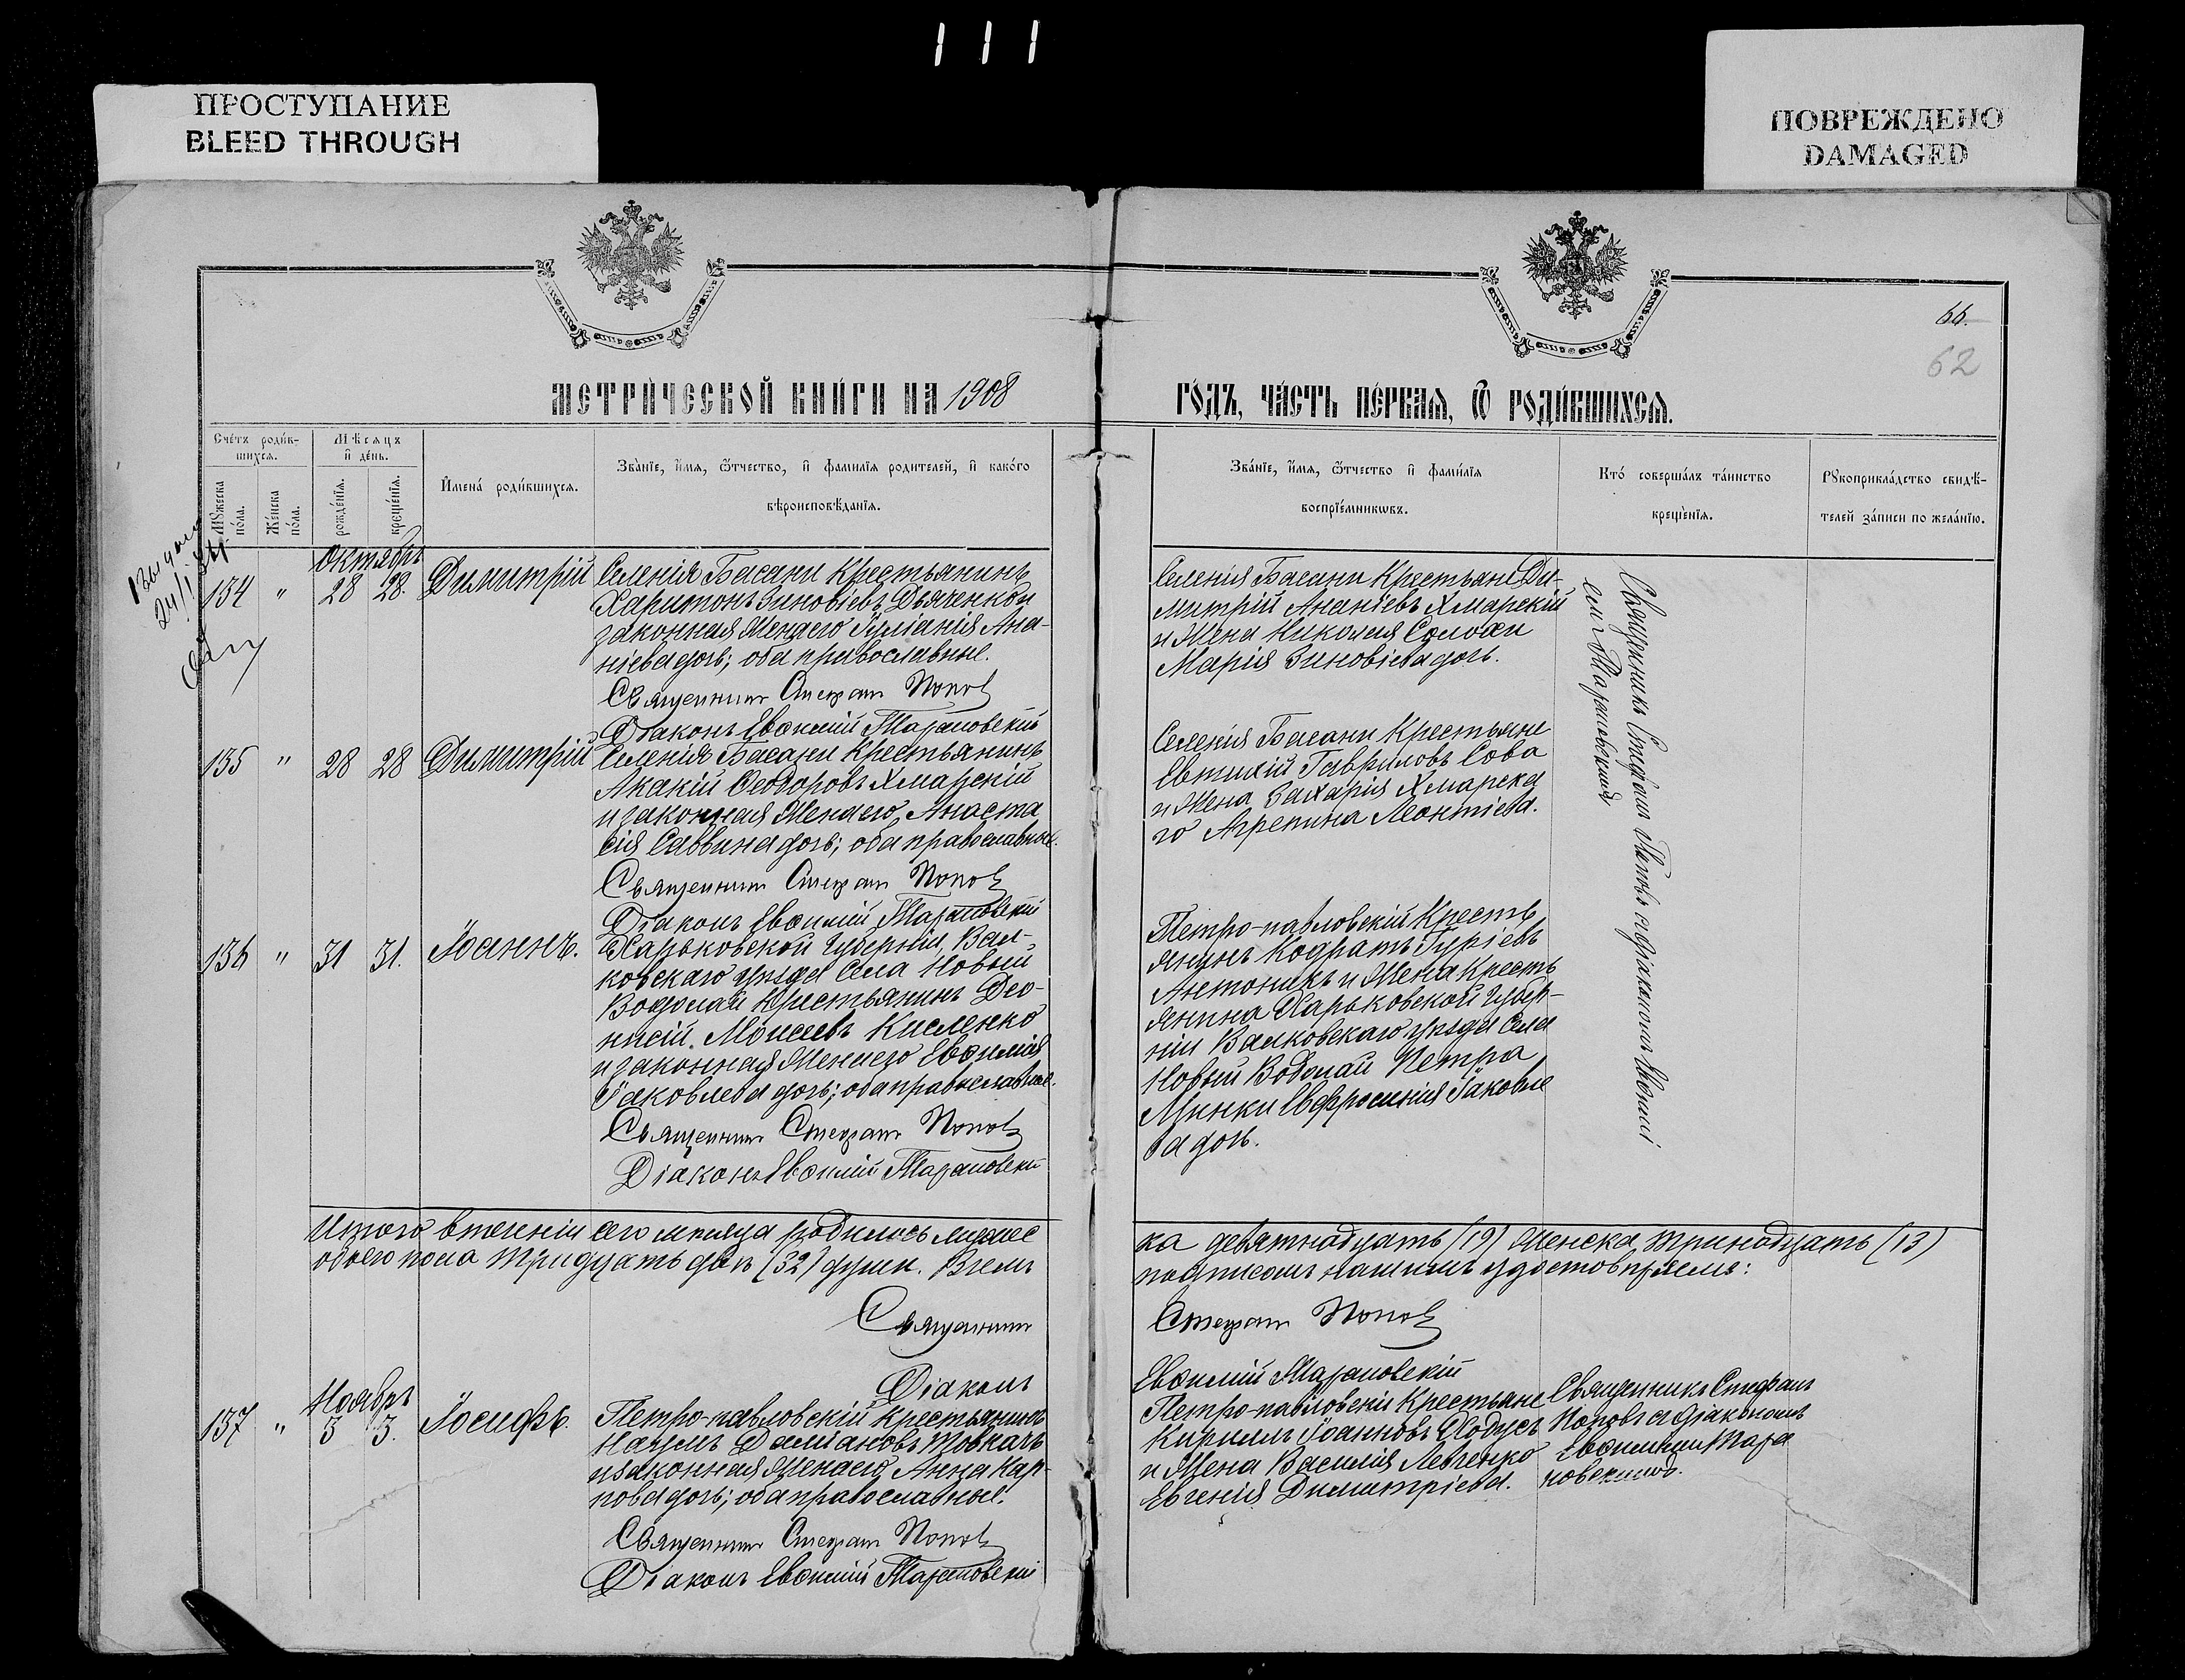 111
ПРОСТУПАНИЕ
BLEED THROUGH
ПОВРЕЖДЕНО
DAMAGED
66.
62
МЕТРИ́ЧЕСКОЙ КНИ́ГИ НА 1908
ГО́ДЪ, ЧА́СТЬ ПЕ́РВАЯ, Ѿ РОДИ́ВШИХСЯ.
Сче́тъ роди́в-
шихся.
Мѣсяцъ
и де́нь.
Му́жеска
по́ла.
Же́нска
по́ла.
рожде́нїя.
креще́нїя.
Имена́ роди́вшихся.
Зва́нїе, и́мя, ѻ҆́тчество, и҆ фами́лїя родителей, и҆ како́го
вѣроисповѣ́данїя.
Зва́нїе, и́мя, ѻ҆́тчество и҆ фами́лїя
воспрїе́мникѡвъ.
Кто́ соверша́лъ та́инство
креще́нїя.
Рꙋкоприкла́дство свидѣ́-
телей за́писи по жела́нїю.
Октябрь
134 " 28 28. Димитрій
Селенія Басани Крестьянинъ
Харитонъ Зиновіевъ Дьяченко и
законная Жена его Іуліанія Ана-
ніева дочь; оба православные.
Священникъ Стефанъ Поповъ
Діаконъ Евѳимій Тарановскій
Селенія Басани Крестьяне Ди-
митрій Ананіевъ Хмарскій
и Жена Николая Солохи
Марія Зиновіева дочь.
Священникъ Стефанъ Поповъ съ діакономъ Евѳимі
емъ Тарановскимъ
135 " 28 28 Димитрій
Селенія Басани Крестьянинъ
Акакій Ѳеодоровъ Хмарскій
и законная Жена его Анаста
сія Саввина дочь; оба православные.
Священникъ Стефанъ Поповъ
Діаконъ Евѳимій Тарановскій
Селенія Басани Крестьяне
Евтихій Гавриловъ Сова
и Жена Захарія Хмарска
го Агрепина Леонтіева.
136 " 31 31. Іоаннъ.
Харьковской Губерніи, Вал-
ковскаго уѣзда Села Новый
Водолай Крестьянинъ Део-
нисій Моисеевъ Кисленко
и законная Жена его Евѳимія
Іаковлева дочь; оба православные.
Священникъ Стефанъ Поповъ
Діаконъ Евѳимій Тарановскій
Петро-павловскій Кресть
янинъ Кодратъ Гуріевъ
Антоникъ и Жена Кресть
янина Харьковской Губер-
ніи Валковскаго уѣзда Села
Новый Водолай Петра
Мѣнки Евфросинія Іаковле
ва дочь.
Итого втеченіи сего мѣсяца родилось мужес
ка девятнадцать (19) Женска тринадцать (13)
обоего пола тридцать двѣ (32) души. Въ чемъ
подписомъ нашимъ удостовѣряемъ:
Священникъ Стефанъ Поповъ
Діаконъ Евѳимій Тарановскій
Ноябрь
137 " 3 3. Іосифъ.
Петро-павловскій Крестьянинъ
Наумъ Даміановъ Товкачъ
и законная Жена его Анна Кар-
пова дочь; оба православные.
Священникъ Стефанъ Поповъ
Діаконъ Евѳимій Тарановскій
Петро-павловскіи Крестьяне
Кириллъ Іоанновъ Ходусъ
и Жена Василія Левченко
Евгенія Димитріева.
Священникъ Стефанъ
Поповъ съ діакономъ
Евѳиміемъ Тара
новскимъ.